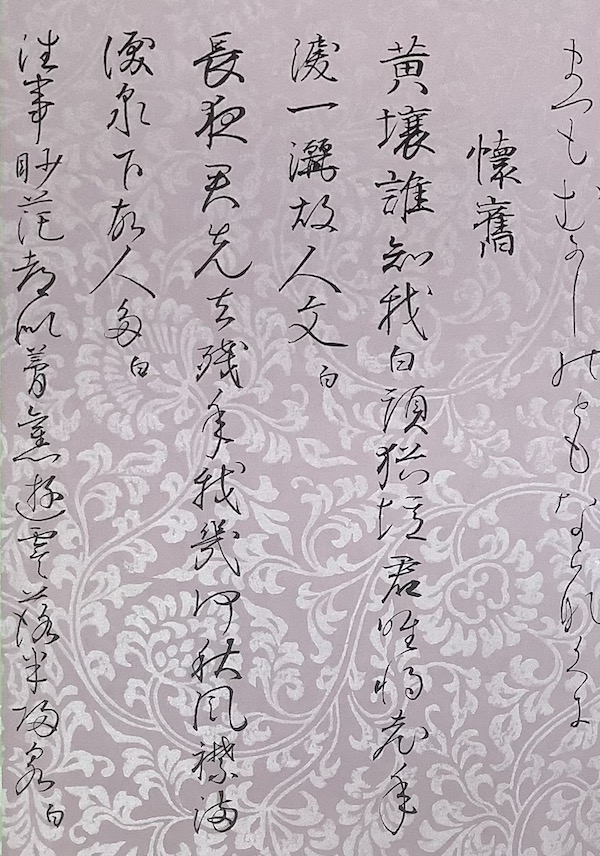 まつもむかしのともならなくに
懷舊
黄壤誰知我白頭徒憶君唯将老年
涙一灑故人文白
長夜君先去殘年我幾何秋風襟満
涙泉下故人多白
往事眇茫都似夢舊遊零落半歸泉白